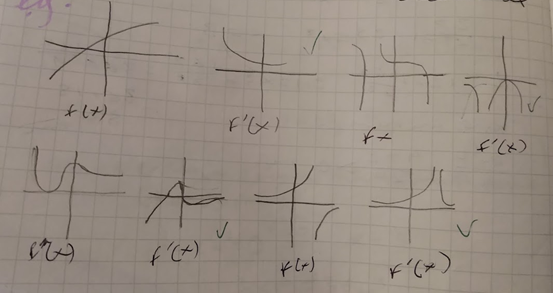 e.g.
f(x) f'(x) fx f'(x)
f'(x) f(x) f'(x)